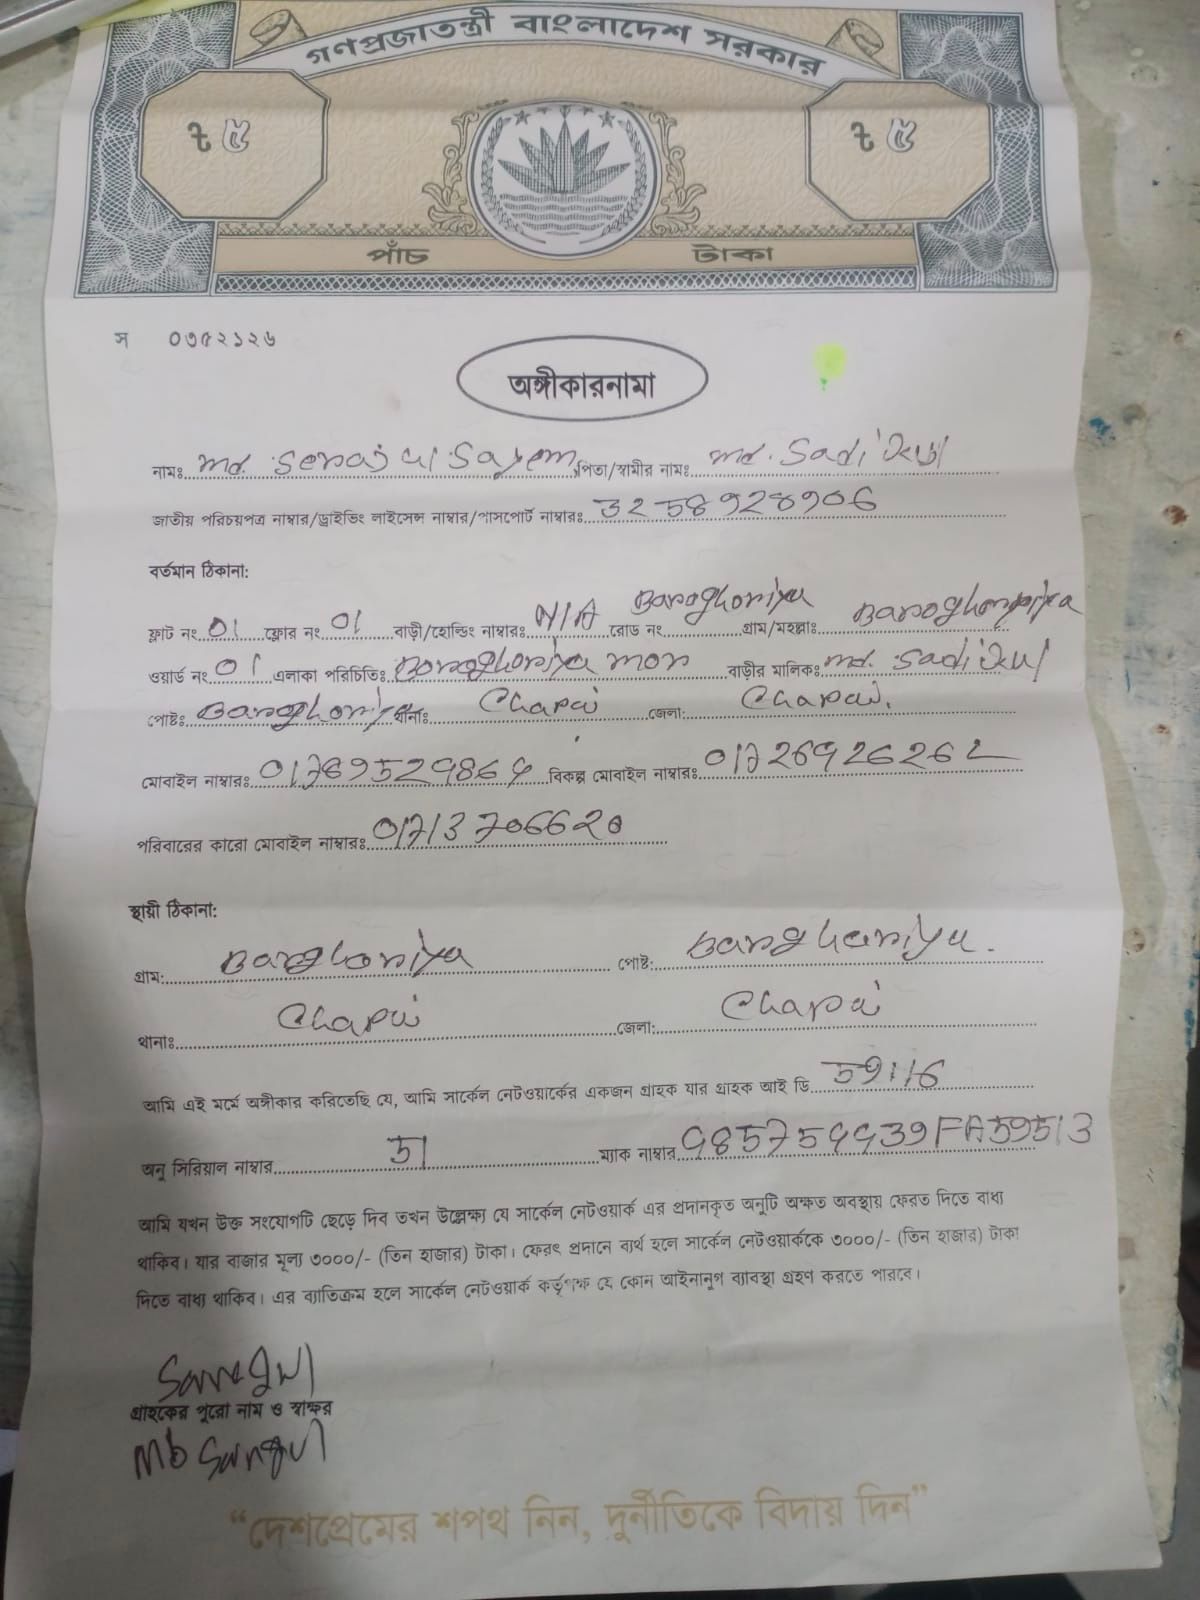 গণপ্রজাতন্ত্রী বাংলাদেশ সরকার
৳ ৫ ৳ ৫
পাঁচ টাকা
স ০৩৫২১২৬
অঙ্গীকারনামা
নামঃ Md. Serajul Sayem পিতা/স্বামীর নামঃ Md. Sadikul
জাতীয় পরিচয়পত্র নাম্বার/ড্রাইভিং লাইসেন্স নাম্বার/পাসপোর্ট নাম্বারঃ
বর্তমান ঠিকানা:
ফ্লাট নং 01 ফ্লোর নং 01 বাড়ী/হোল্ডিং নাম্বারঃ N/A রোড নং Baroghoriya গ্রাম/মহল্লাঃ Baroghoriya
ওয়ার্ড নং 01 এলাকা পরিচিতিঃ Baroghoriya mor বাড়ীর মালিকঃ Md. Sadikul
পোষ্টঃ Baroghoriya থানাঃ Chapai জেলা: Chapai.
মোবাইল নাম্বারঃ বিকল্প মোবাইল নাম্বারঃ
পরিবারের কারো মোবাইল নাম্বারঃ 01713706620
স্থায়ী ঠিকানা:
গ্রাম: Baroghoriya পোষ্ট: Baroghoriya.
থানাঃ Chapai জেলা: Chapai
আমি এই মর্মে অঙ্গীকার করিতেছি যে, আমি সার্কেল নেটওয়ার্কের একজন গ্রাহক যার গ্রাহক আই ডি
অনু সিরিয়াল নাম্বার 51 ম্যাক নাম্বার
আমি যখন উক্ত সংযোগটি ছেড়ে দিব তখন উল্লেক্ষ্য যে সার্কেল নেটওয়ার্ক এর প্রদানকৃত অনুটি অক্ষত অবস্থায় ফেরত দিতে বাধ্য
থাকিব। যার বাজার মূল্য ৩০০০/- (তিন হাজার) টাকা। ফেরৎ প্রদানে ব্যর্থ হলে সার্কেল নেটওয়ার্ককে ৩০০০/- (তিন হাজার) টাকা
দিতে বাধ্য থাকিব। এর ব্যাতিক্রম হলে সার্কেল নেটওয়ার্ক কর্তৃপক্ষ যে কোন আইনানুগ ব্যাবস্থা গ্রহণ করতে পারবে।
গ্রাহকের পুরো নাম ও স্বাক্ষর
“দেশপ্রেমের শপথ নিন, দুর্নীতিকে বিদায় দিন”